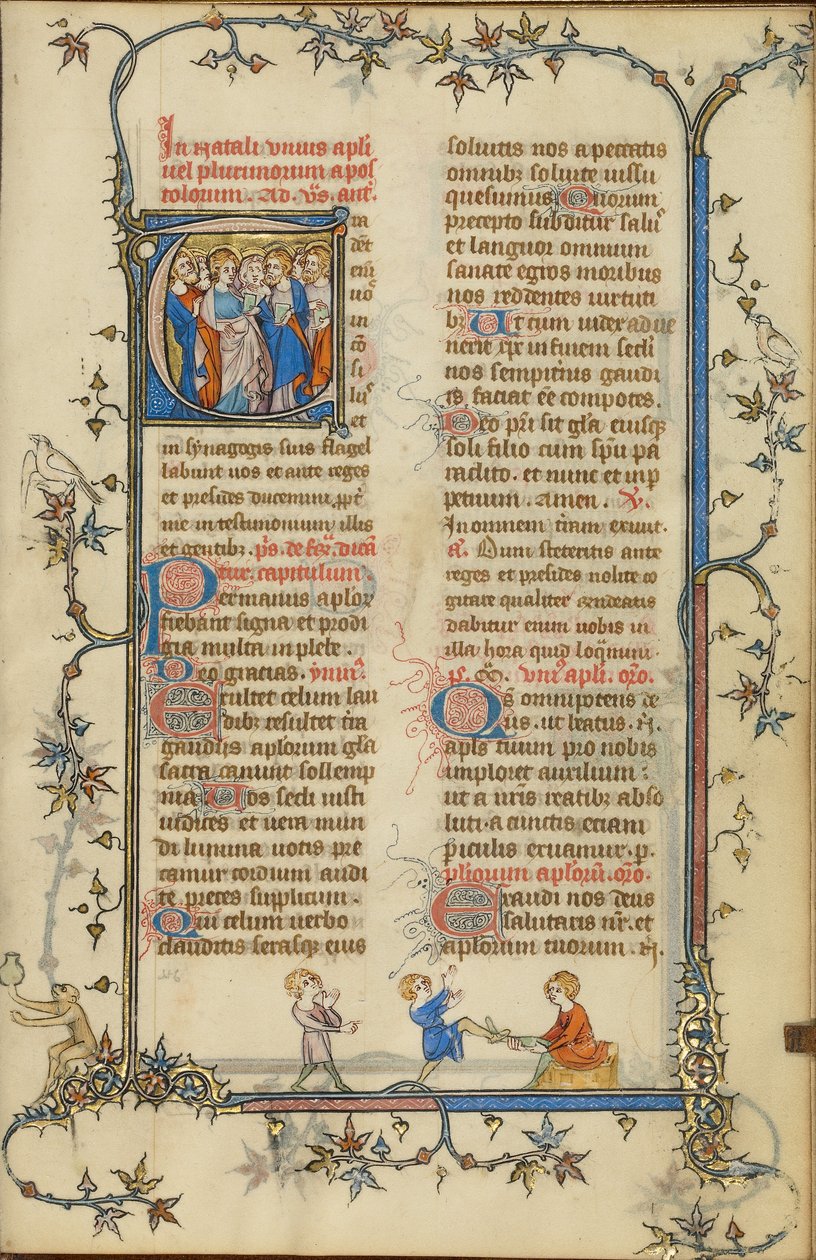 In natali vnius apli
uel plurimorum apos
tolorum. Ad. vs. ant.
ra
dēt
eni
uo
in
cō
si
lijs
et
in synagogis suis flagel
labunt uos et ante reges
et presides ducemini. ppt
me in testimonium illis
et gentibz. ps. de fer. dica
tur. capitulum.
Per manus aplor
fiebant signa et prodi
gia multa in plebe.
Deo gracias. ymn.
Exultet celum lau
dibz resultet tra
gaudiis aplorum gla
sacra canunt sollemp
nia. Uos secli iusti
iudices et uera mun
di lumina uotis pre
camur cordium audi
te preces supplicum.
Qui celum uerbo
clauditis serasqz eius
soluitis nos a peccatis
omnibz soluite iussu
quesumus. Quorum
precepto subditur salus
et languor omnium
sanate egros moribus
nos reddentes uirtuti
bz. Ut cum iudex adue
nerit xpc in finem secli
nos sempiterni gaudi
is faciat ee compotes.
Deo pri sit gla eiusqz
soli filio cum spu pa
raclito. et nunc et in pp
petuum. Amen. V.
In omnem tram exiuit.
a. Dum steteritis ante
reges et presides nolite co
gitare qualiter respondeatis
dabitur enim uobis in
illa hora quid loqmini.
vni apli. oro.
Qs omnipotens de
us. ut beatus. N.
apls tuum pro nobis
imploret auxilium:
ut a nris reatibz abso
luti. a cunctis eciam
piculis exuamur. p.
plurium aplorum. oro.
Exaudi nos deus
salutaris nr. et
aplorum tuorum. N.